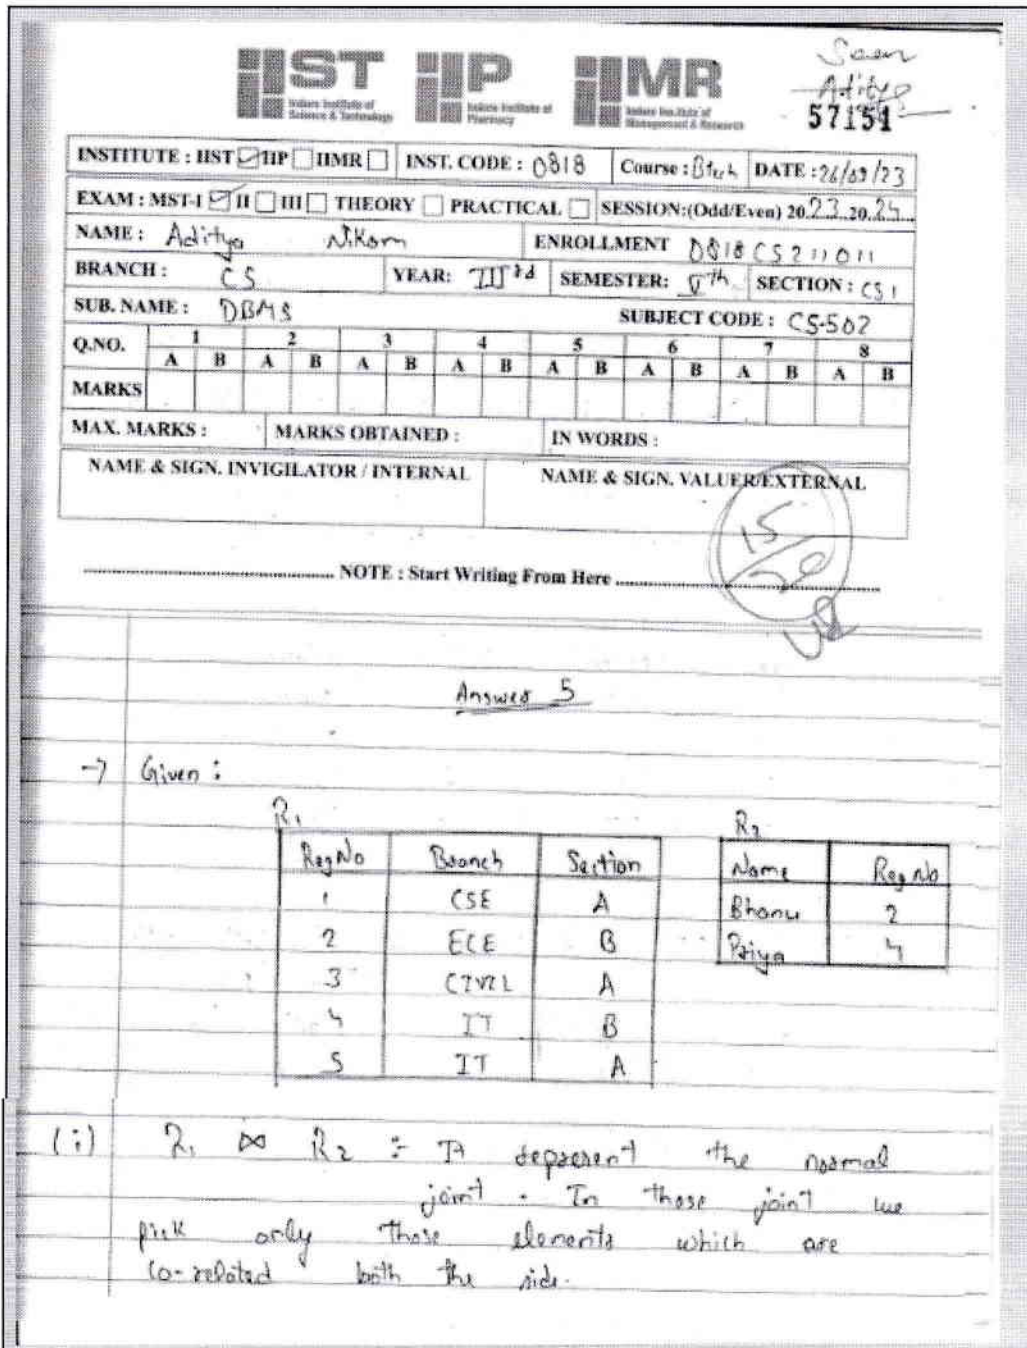 IIST IIP IIMR
Indore Institute of Science & Technology
Indore Institute of Pharmacy
Indore Institute of Management & Research
Seen
Aditya
57151
INSTITUTE : IIST IIP IIMR INST. CODE : 0818 Course : Btech DATE : 26/09/23
EXAM : MST-I II III THEORY PRACTICAL SESSION:(Odd/Even) 20 23 20 24
NAME : Aditya Nikam ENROLLMENT 0818CS211011
BRANCH : CS YEAR: IIIrd SEMESTER: Vth SECTION : CS1
SUB. NAME : DBMS SUBJECT CODE : CS-502
Q.NO. 1 2 3 4 5 6 7 8
A B A B A B A B A B A B A B A B
MARKS
MAX. MARKS : MARKS OBTAINED : IN WORDS :
NAME & SIGN. INVIGILATOR / INTERNAL NAME & SIGN. VALUER/EXTERNAL
15
20
NOTE : Start Writing From Here
Answer 5
→ Given :
R1 R2
RegNo Branch Section Name Reg No
1 CSE A Bhanu 2
2 ECE B Priya 4
3 CIVIL A
4 IT B
5 IT A
(i) R1 ⋈ R2 :- It depresent the normal
joint. In those joint we
pick only those elements which are
co-related both the side.